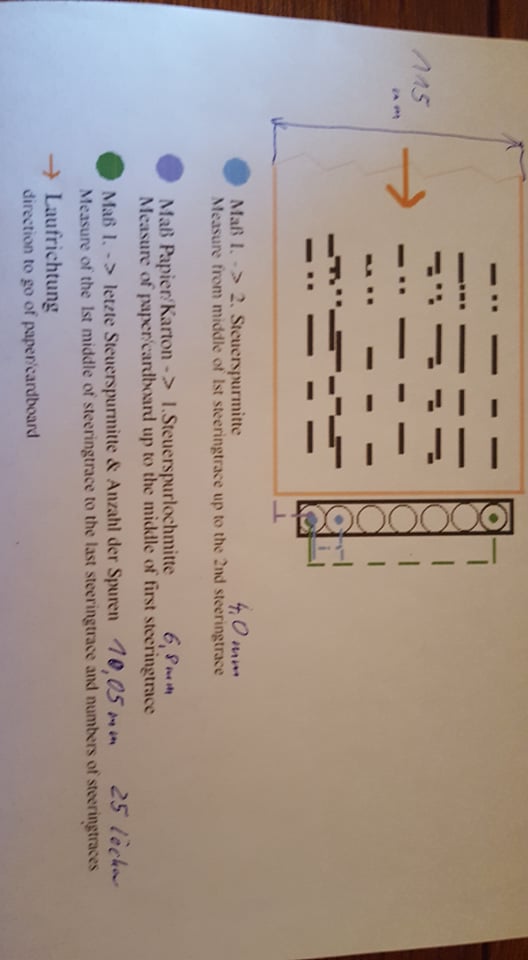 115
mm
Maß 1. -> 2. Steuerspurmitte 4,0 mm
Measure from middle of 1st steeringtrace up to the 2nd steeringtrace
Maß Papier/Karton -> 1.Steuerspurlochmitte 6,8 mm
Measure of paper/cardboard up to the middle of first steeringtrace
Maß 1. -> letzte Steuerspurmitte & Anzahl der Spuren 10,05 mm 25 löcher
Measure of the 1st middle of steeringtrace to the last steeringtrace and numbers of steeringtraces
Laufrichtung
direction to go of paper/cardboard